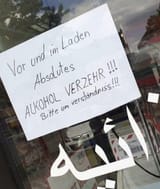 Vor und im Laden
Absolutes
ALKOHOL VERZEHR!!!
Bitte um verständniss!!!